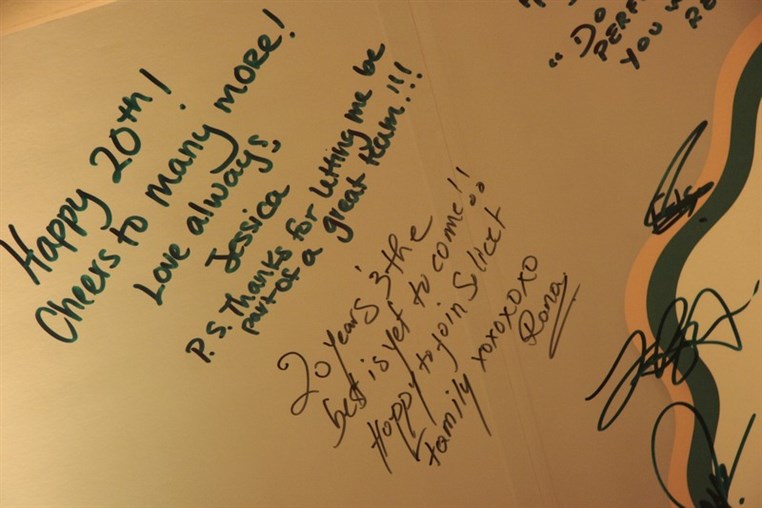 Happy 20th!
Cheers to many more!
Love always,
Jessica
P.S. Thanks for letting me be
part of a great team!!!
20 years & the
best is yet to come!!
Happy to join Solicet
family xoxoxoxo
Rana
"DO
PERF
YOU W